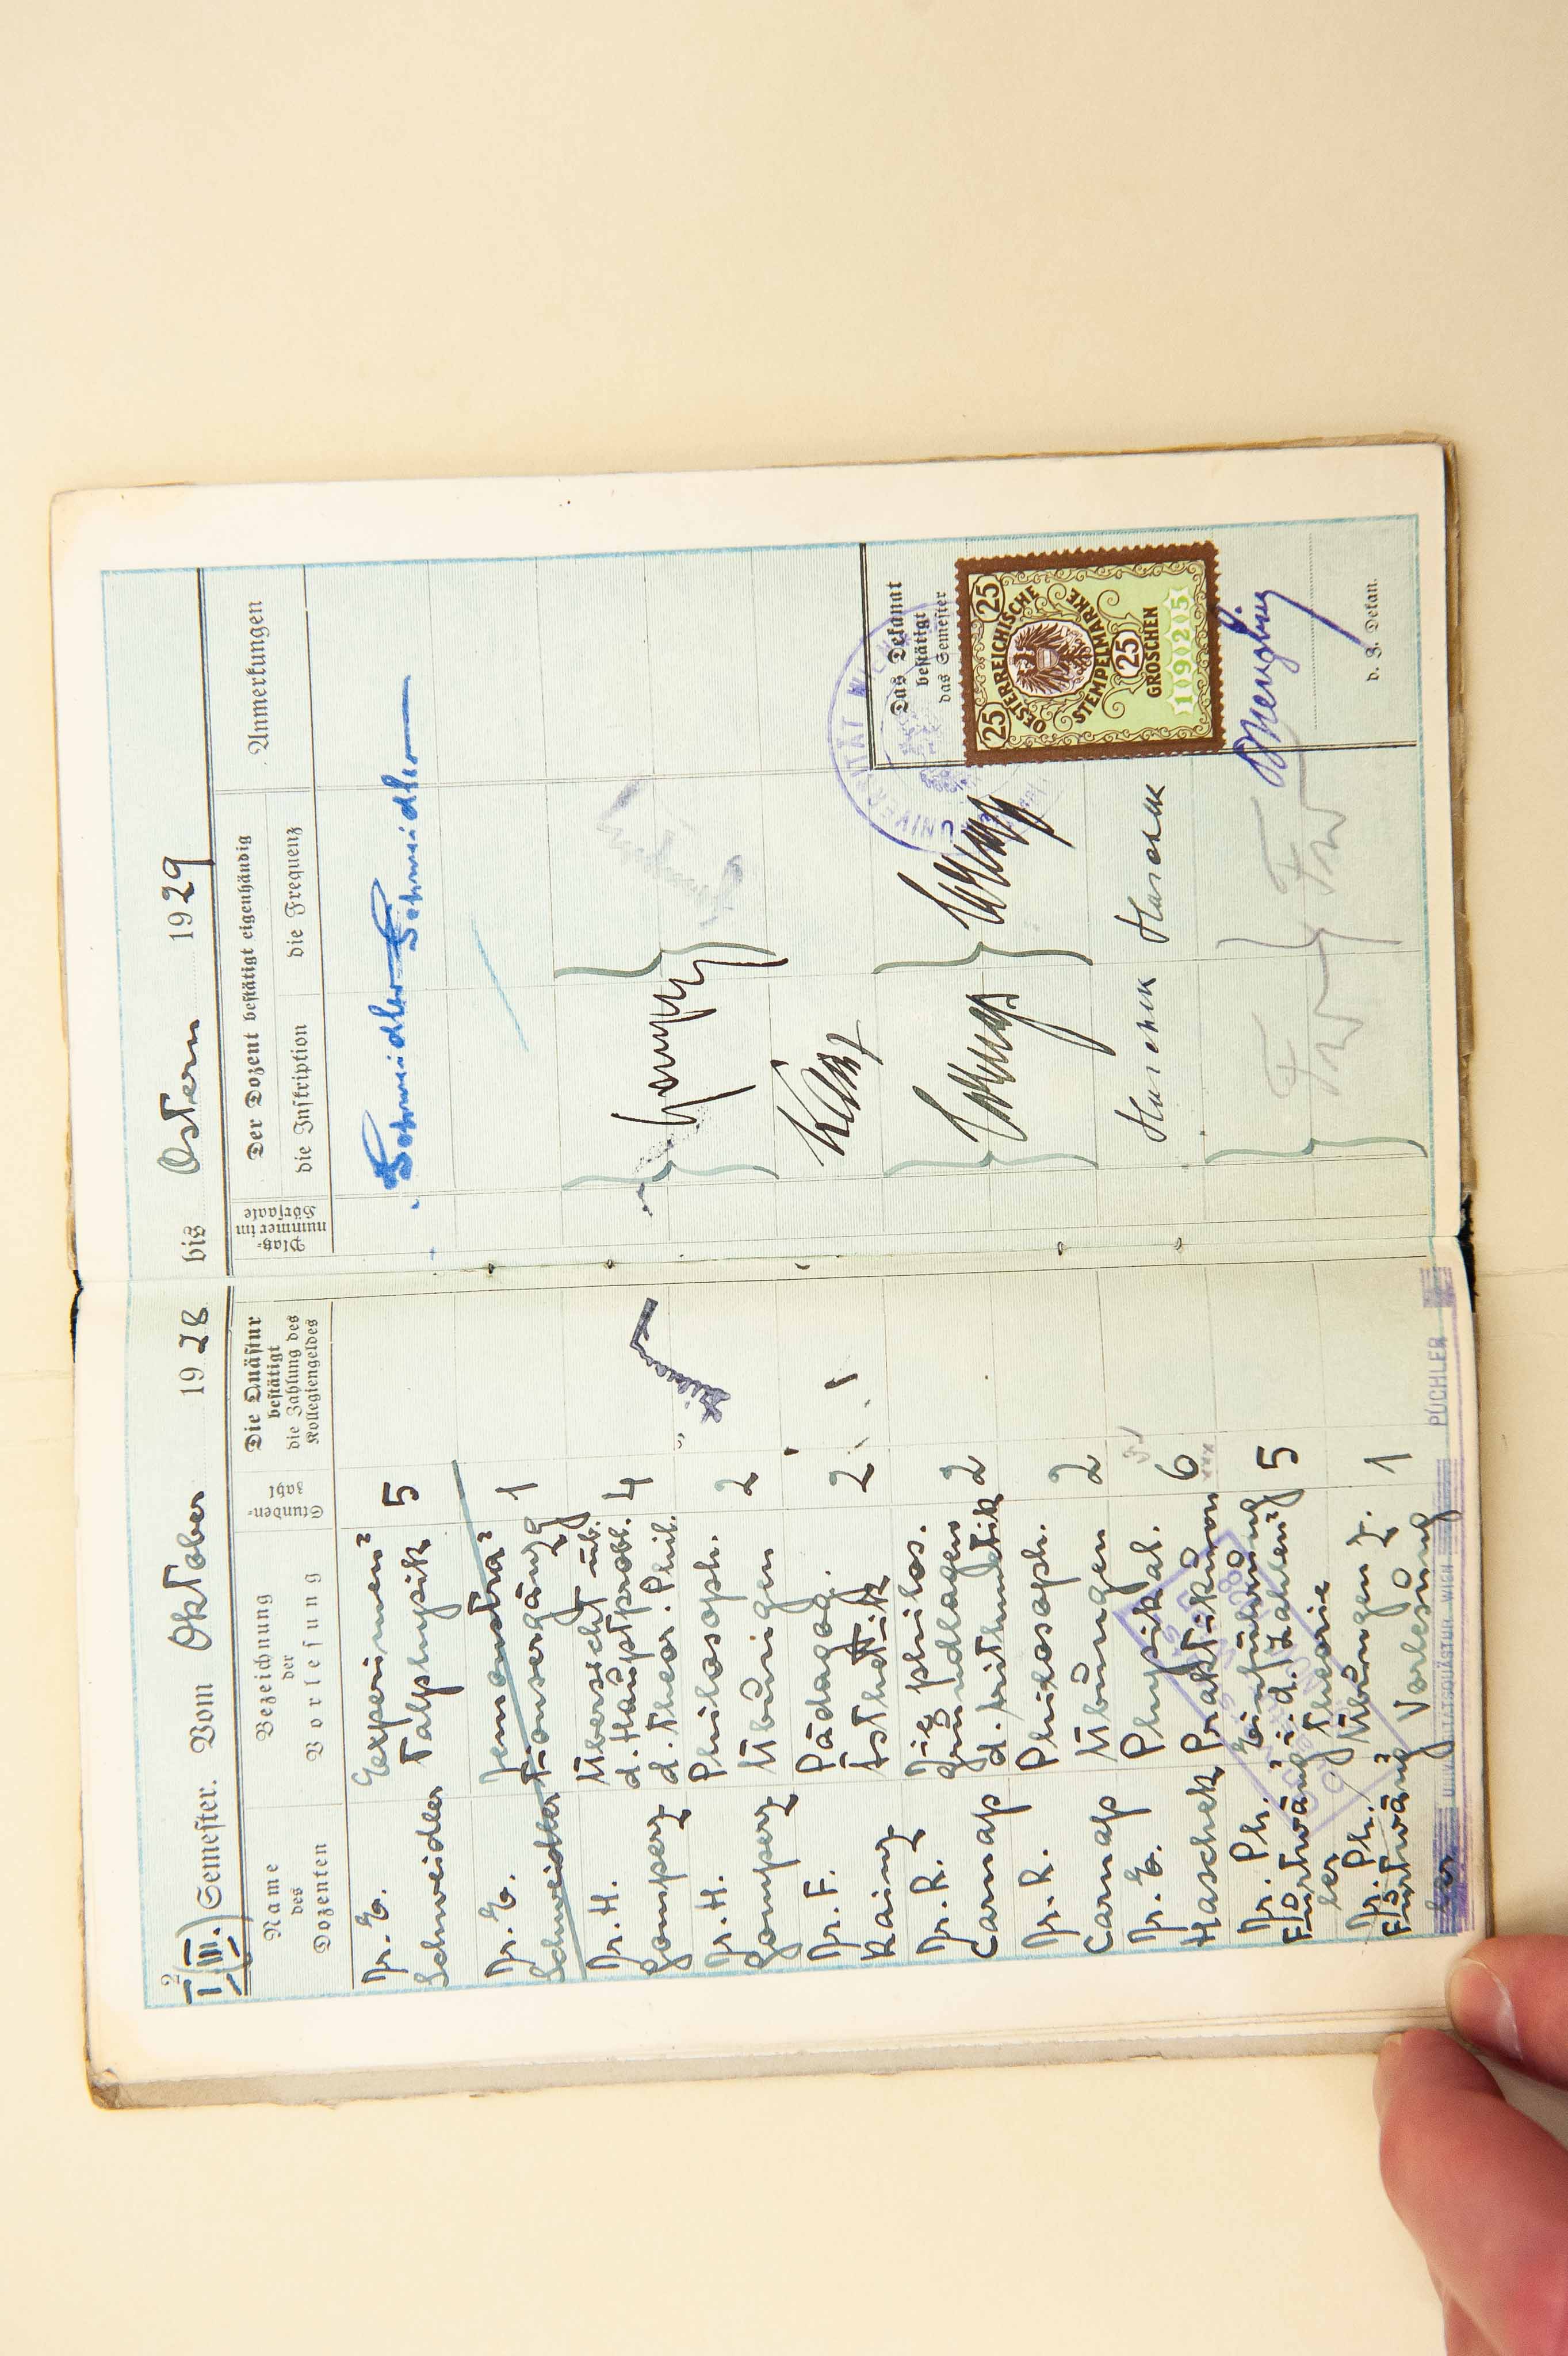 I2
(III.) Semester. Vom Oktober 1928 bis Ostern 1929
Name
des
Dozenten
Bezeichnung
der
Vorlesung
Stunden-
zahl
Die Quästur
bestätigt
die Zahlung des
Kollegiengeldes
Platz-
nummer im
Hörsaale
Der Dozent bestätigt eigenhändig
die Inskription
die Frequenz
Anmerkungen
Dr. E. Experimen=
Schweidler talphysik 5
Schweidler Schweidler
Dr. E. Demonstra=
Schweidler tionsergänzg 1
Dr. H. Übersicht üb.
Gomperz d. Hauptprobl. 4
d. theor. Phil.
Gomperz
Dr. H. Philosoph.
Gomperz Übungen 2
Dr. F. Pädagog.
Kainz Ästhetik 2
Kainz
Dr. R. Die philos.
Carnap Grundlagen 2
d. Arithmetik
Carnap Carnap
Dr. R. Philosoph.
Carnap Übungen 2
Dr. E. Physikal.
Haschek Praktikum 6
Haschek Haschek
Dr. Ph. Einführung
Furtwäng= i. d. Zahlen= 5
ler theorie
Fw Fw
Dr. Ph. Übungen z.
Furtwäng= Vorlesung 1
ler
Das Dekanat
bestätigt
das Semester
UNIVERSITÄT WIEN
25 25
OESTERREICHISCHE
STEMPELMARKE
25
GROSCHEN
1925
d. Z. Dekan.
UNIVERSITÄTSQUÄSTUR WIEN PÜCHLER